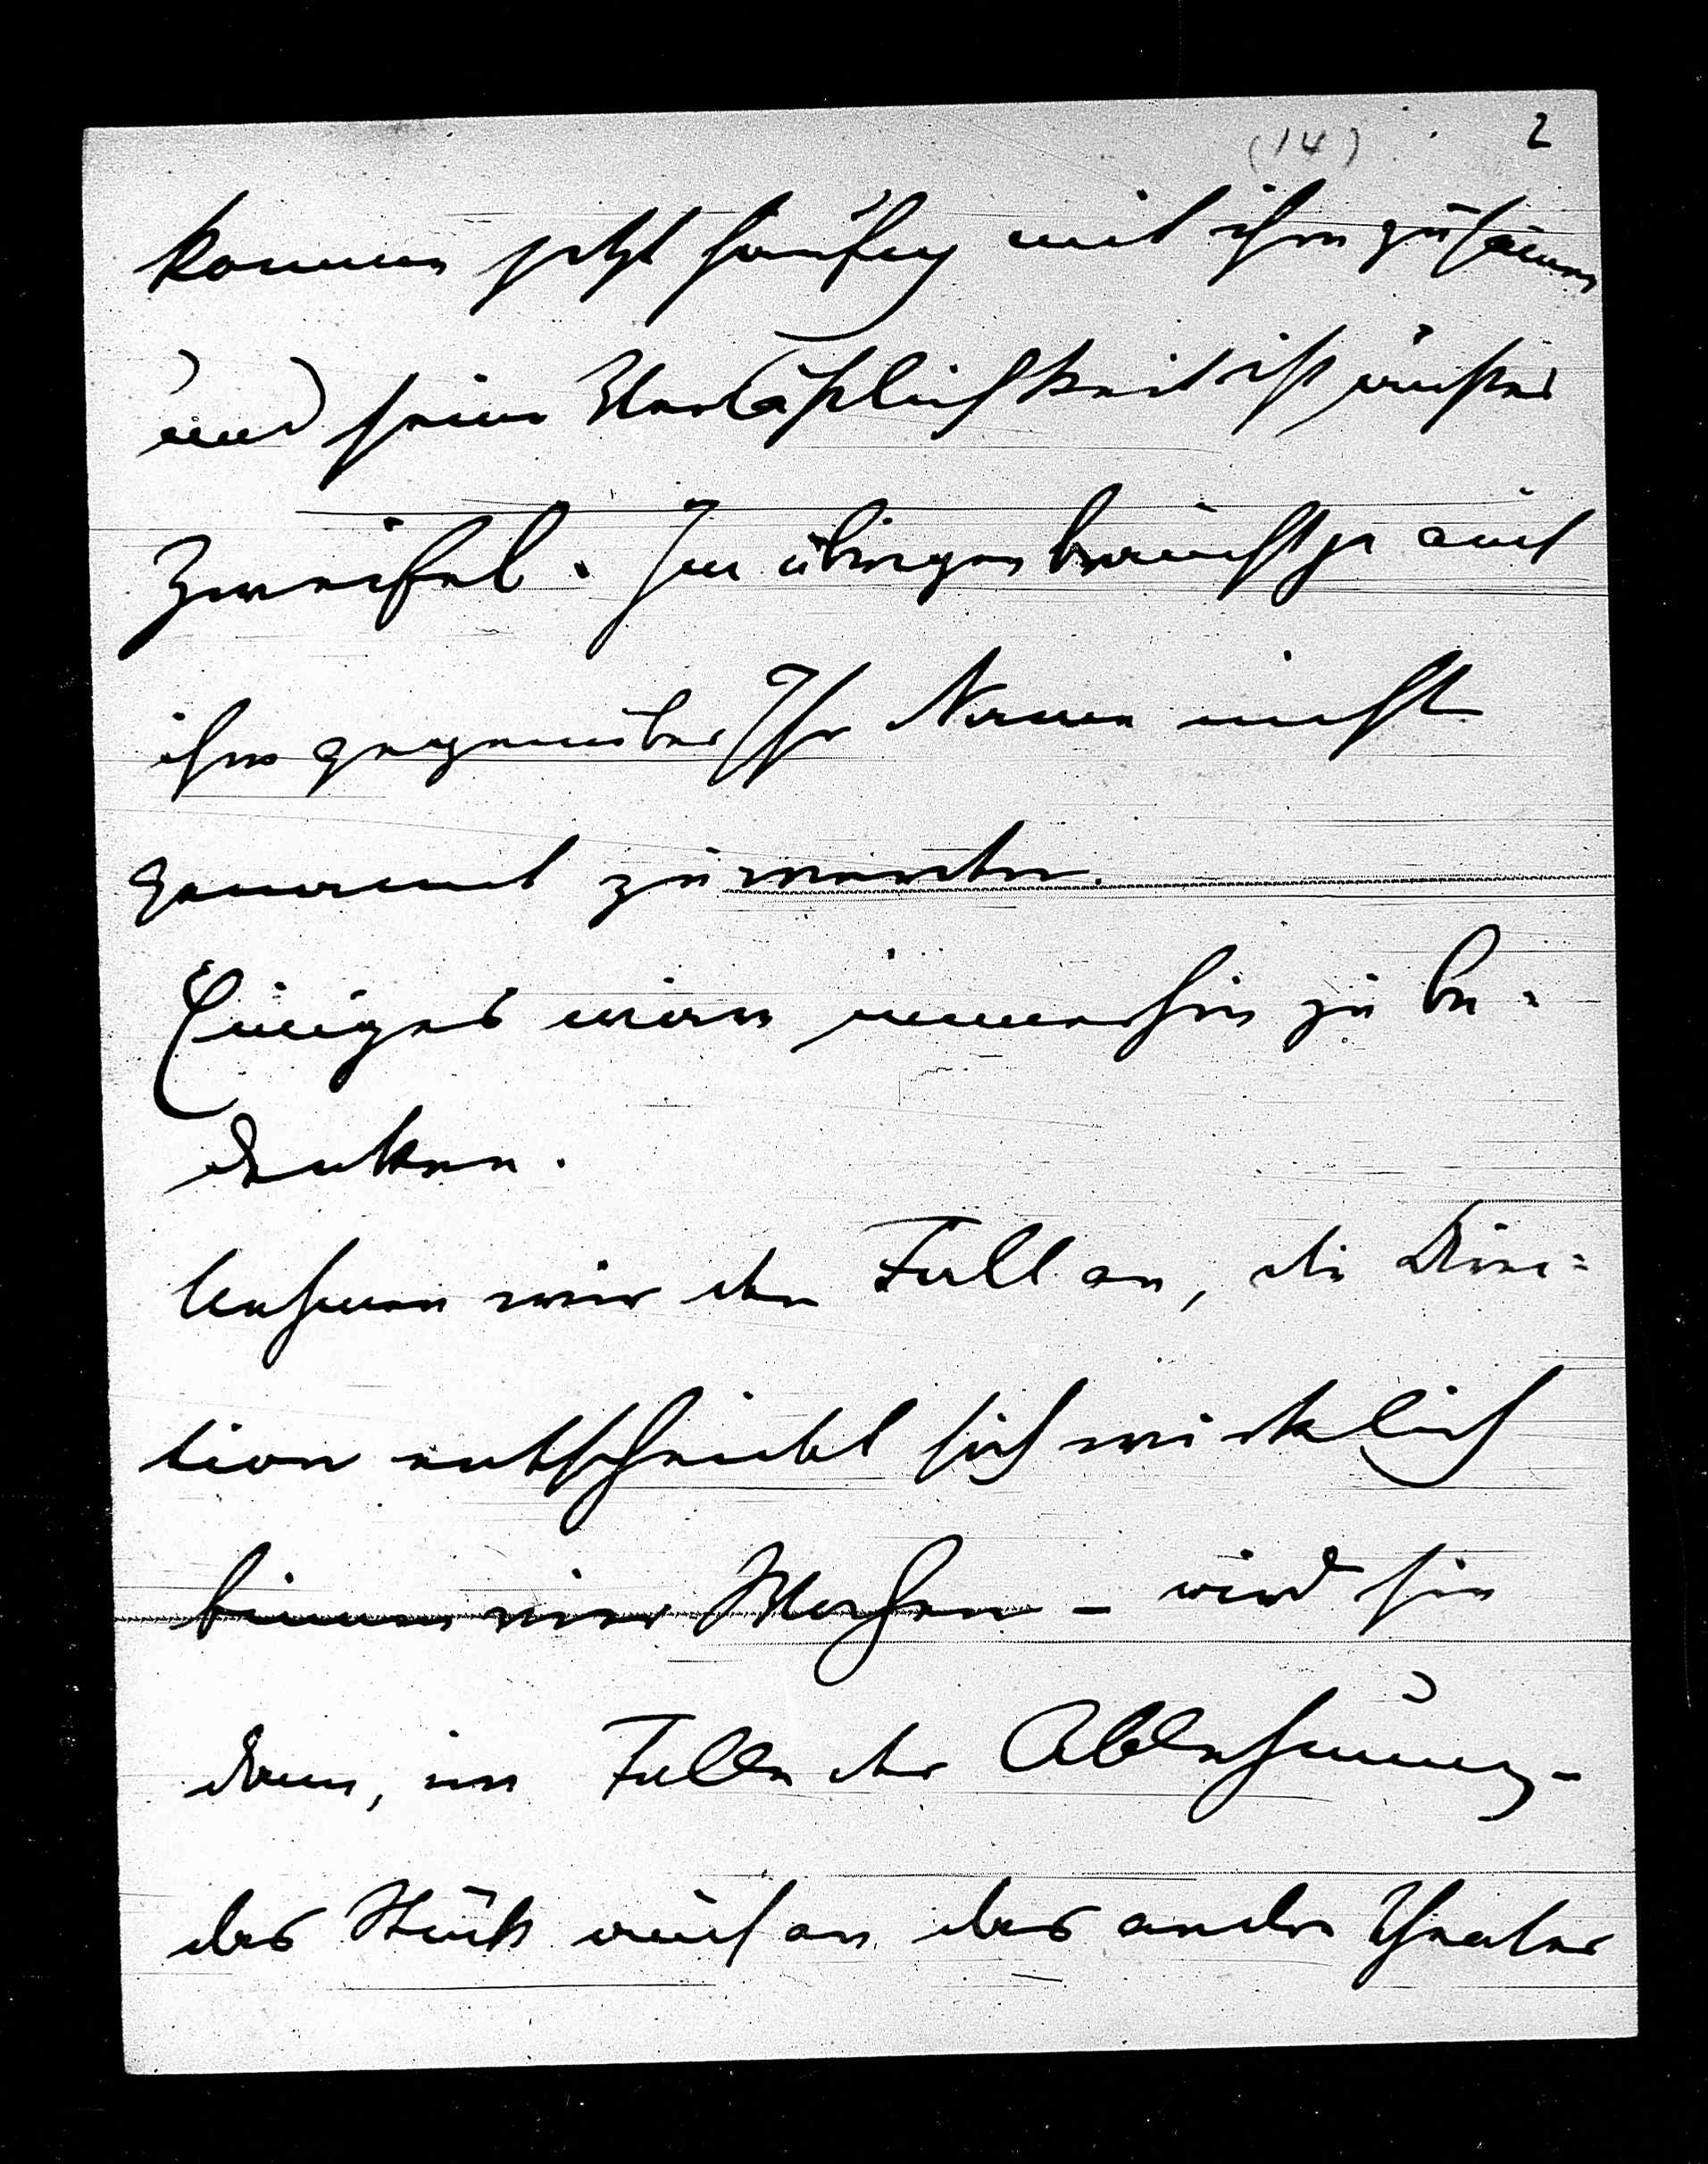 (14) 2
komme jetzt häufig mit ihm zusammen
und seine Verläßlichkeit ist außer
Zweifel. Im übrigen braucht ja auch
ihm gegenüber Ihr Name nicht
genannt zu werden.
Einiges wäre immerhin zu be-
denken.
Nehmen wir den Fall an, die Direc-
tion entscheidet sich wirklich
binnen vier Wochen – wird sie
dann, im Falle der Ablehnung –
das Stück auch an das andre Theater